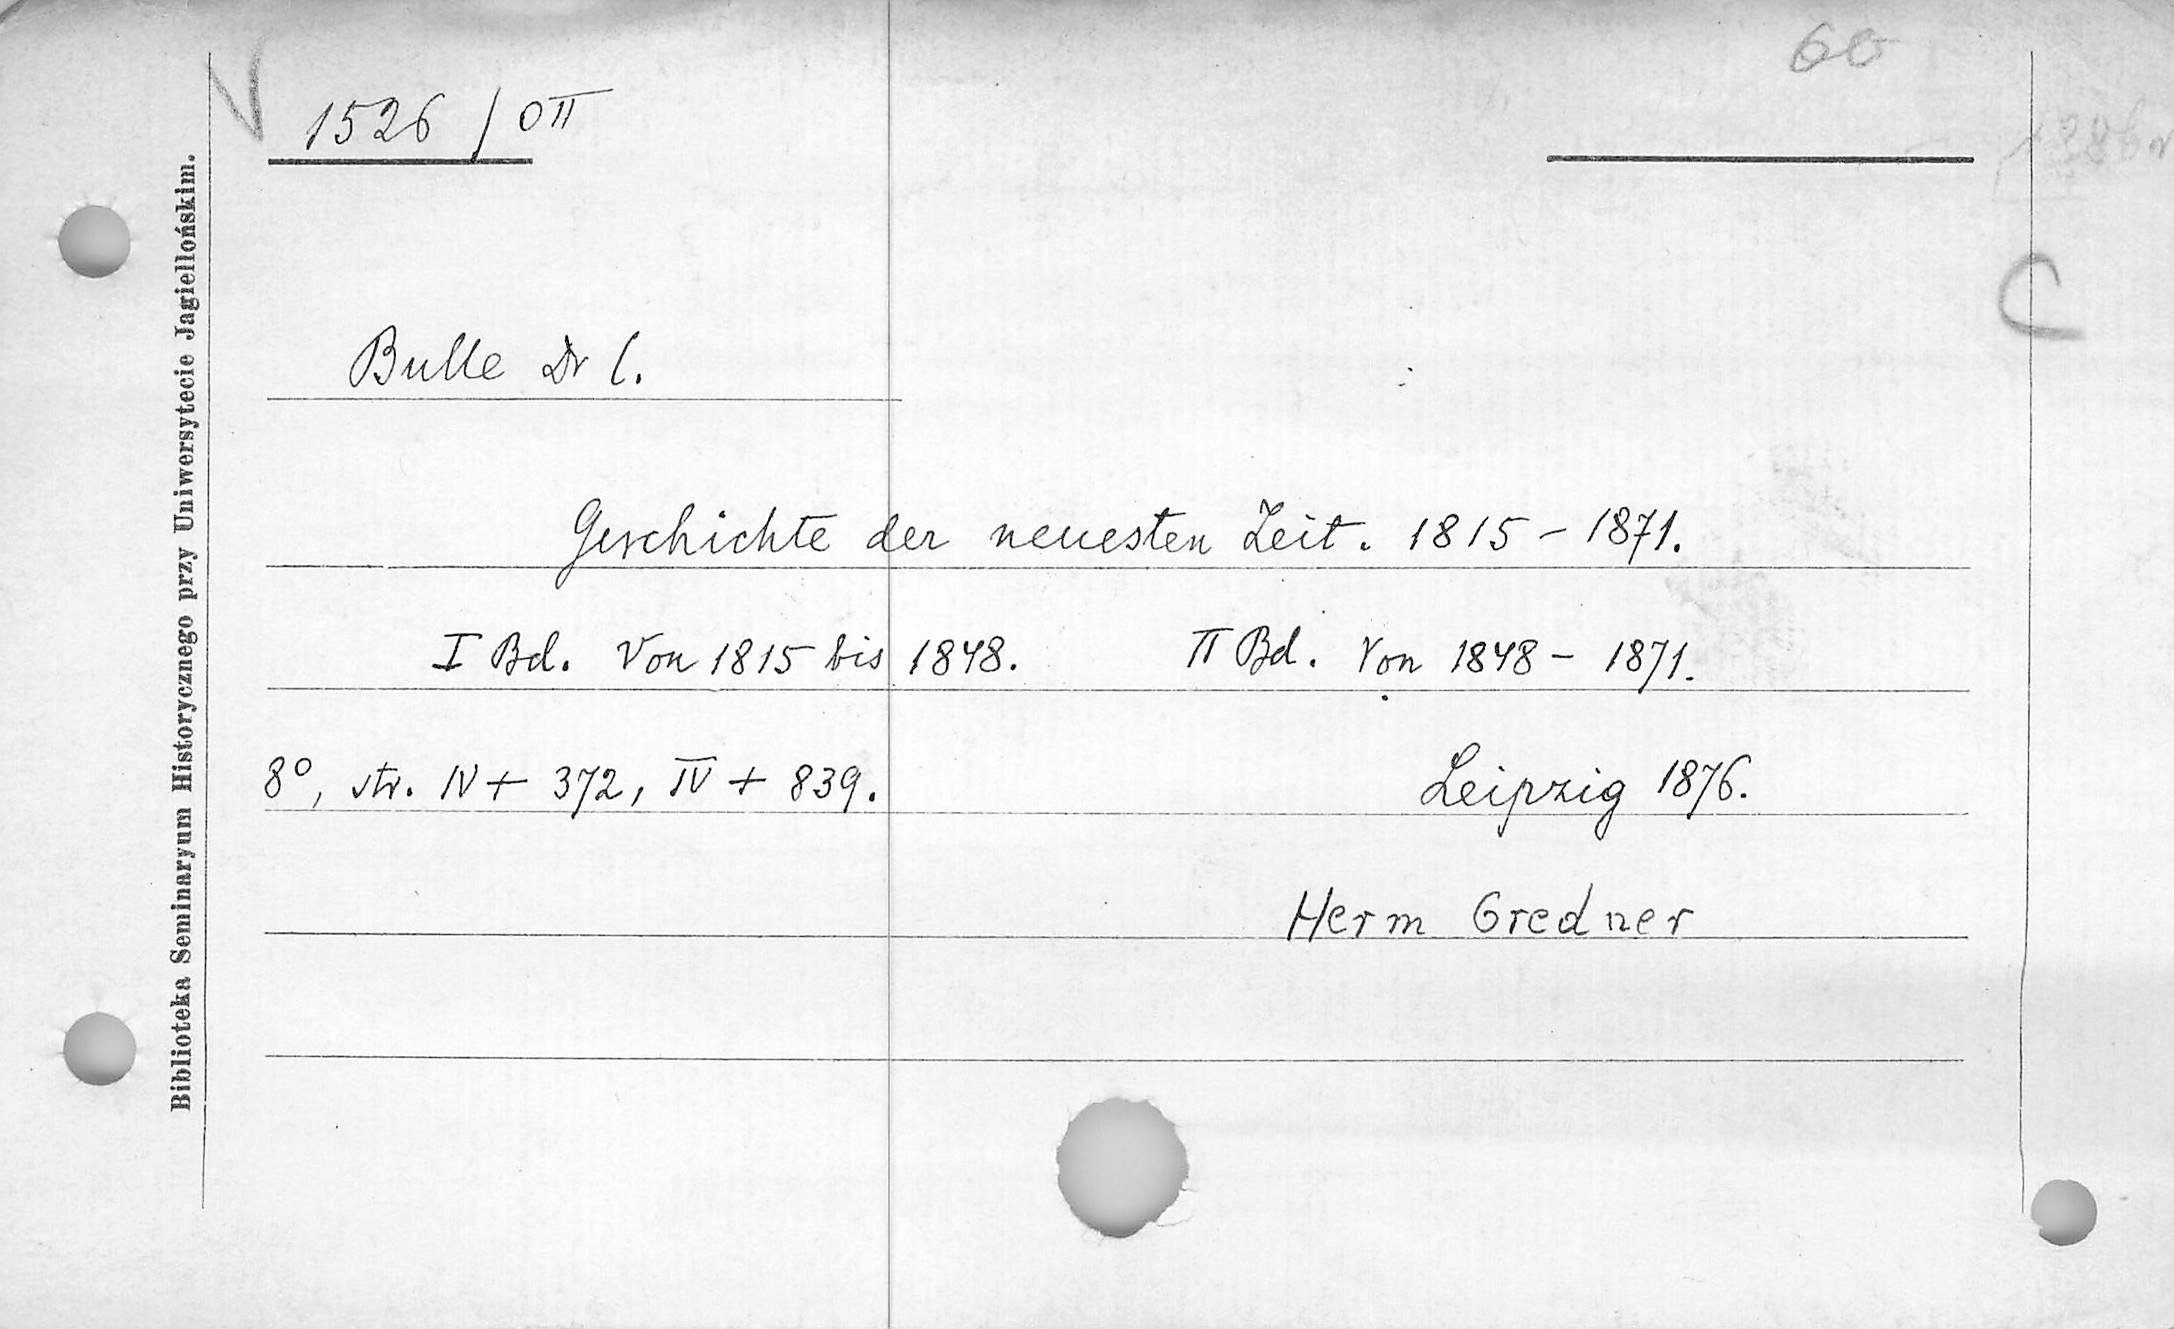 V 1526 / O II
60
C
Bulle Dr C.
Geschichte der neuesten Zeit. 1815 - 1871.
I Bd. Von 1815 bis 1848. II Bd. Von 1848 - 1871.
8°, str. IV + 372, IV + 839. Leipzig 1876.
Herm Gredner
Biblioteka Seminaryum Historycznego przy Uniwersytecie Jagiellońskim.